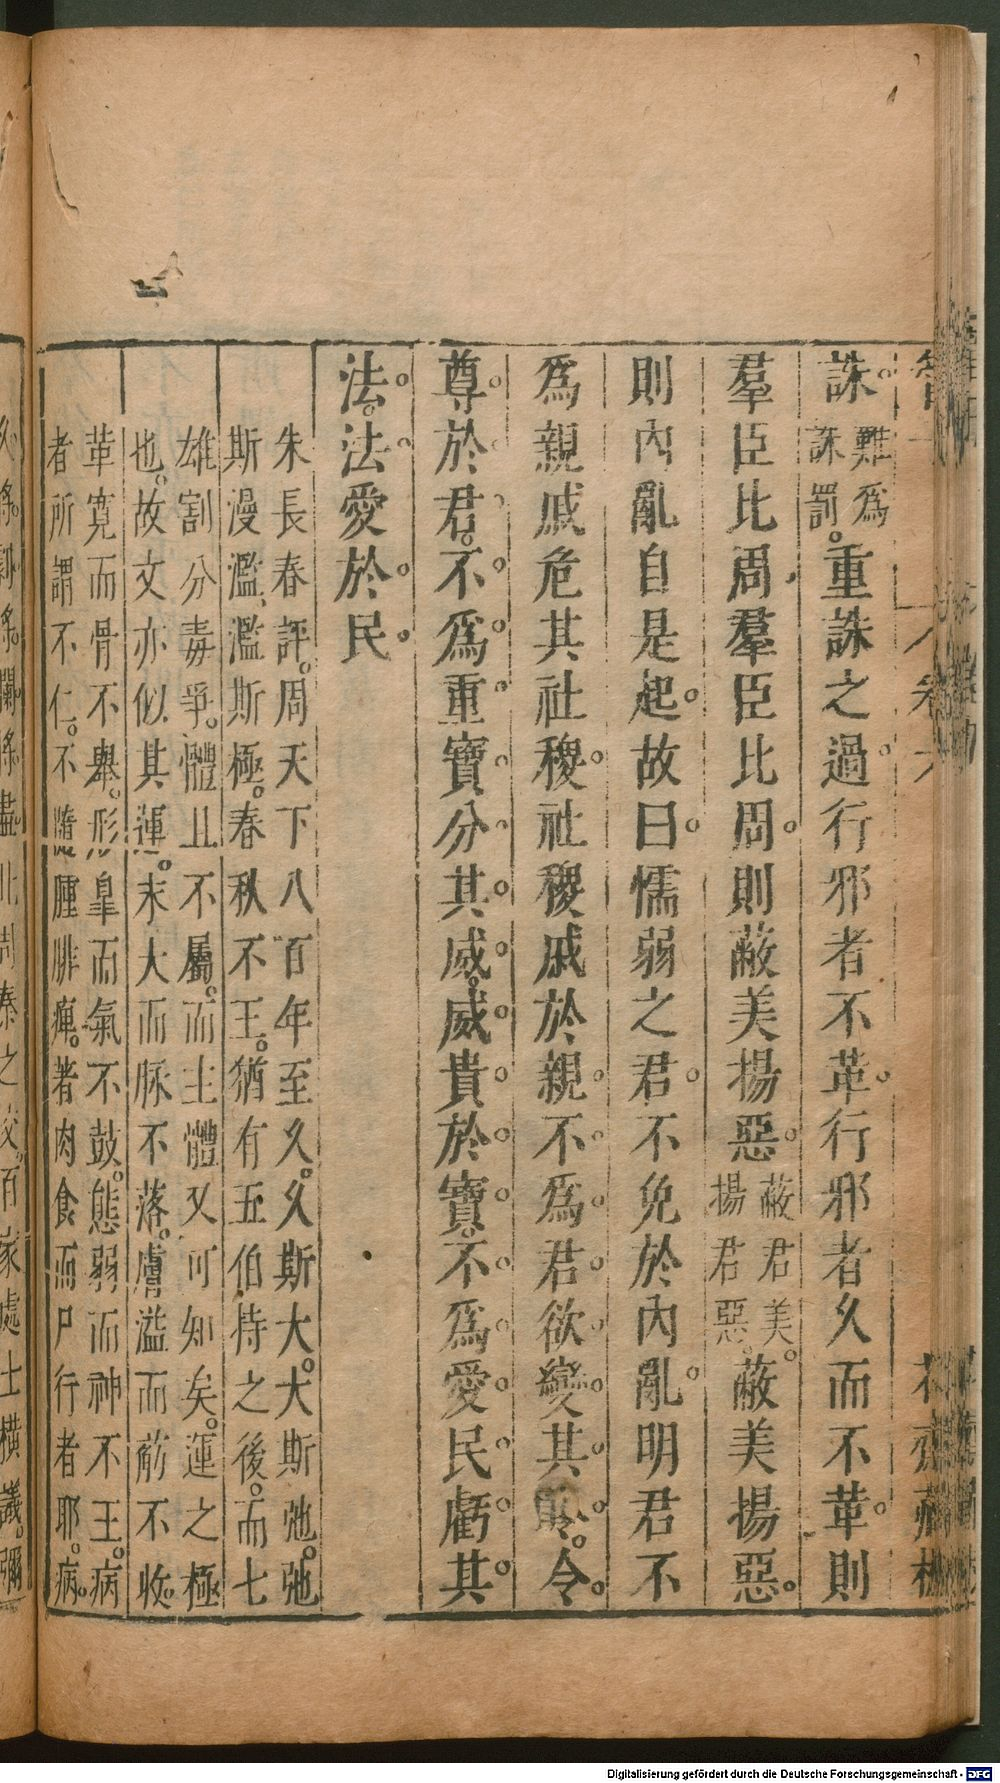 誅難爲誅罰。重誅之過。行邪者不革。行邪者久而不革。則
羣臣比周。羣臣比周。則蔽美揚惡。蔽君美。揚君惡。蔽美揚惡。
則內亂自是起。故曰。懦弱之君。不免於內亂。明君不
爲親戚危其社稷。社稷戚於親。不爲君欲變其令。令。
尊於君。不爲重寶分其威。威貴於寶。不爲愛民虧其
法。法愛於民。
朱長春評。周天下八百年至久。久斯大。大斯弛。弛
斯漫濫、濫斯極。春秋不王。猶有五伯持之後。而七
雄割分毒爭。體且不屬。而主體又可知矣。運之極
也。故文亦似其運。末大而脉不落。膚溢而葥不收。
革寬而骨不舉。形臯而氣不鼓。態弱而神不王。病
者所謂不仁。不隨腫腓痺。著肉食而尸行者耶。病。
Digitalisierung gefördert durch die Deutsche Forschungsgemeinschaft - DFG